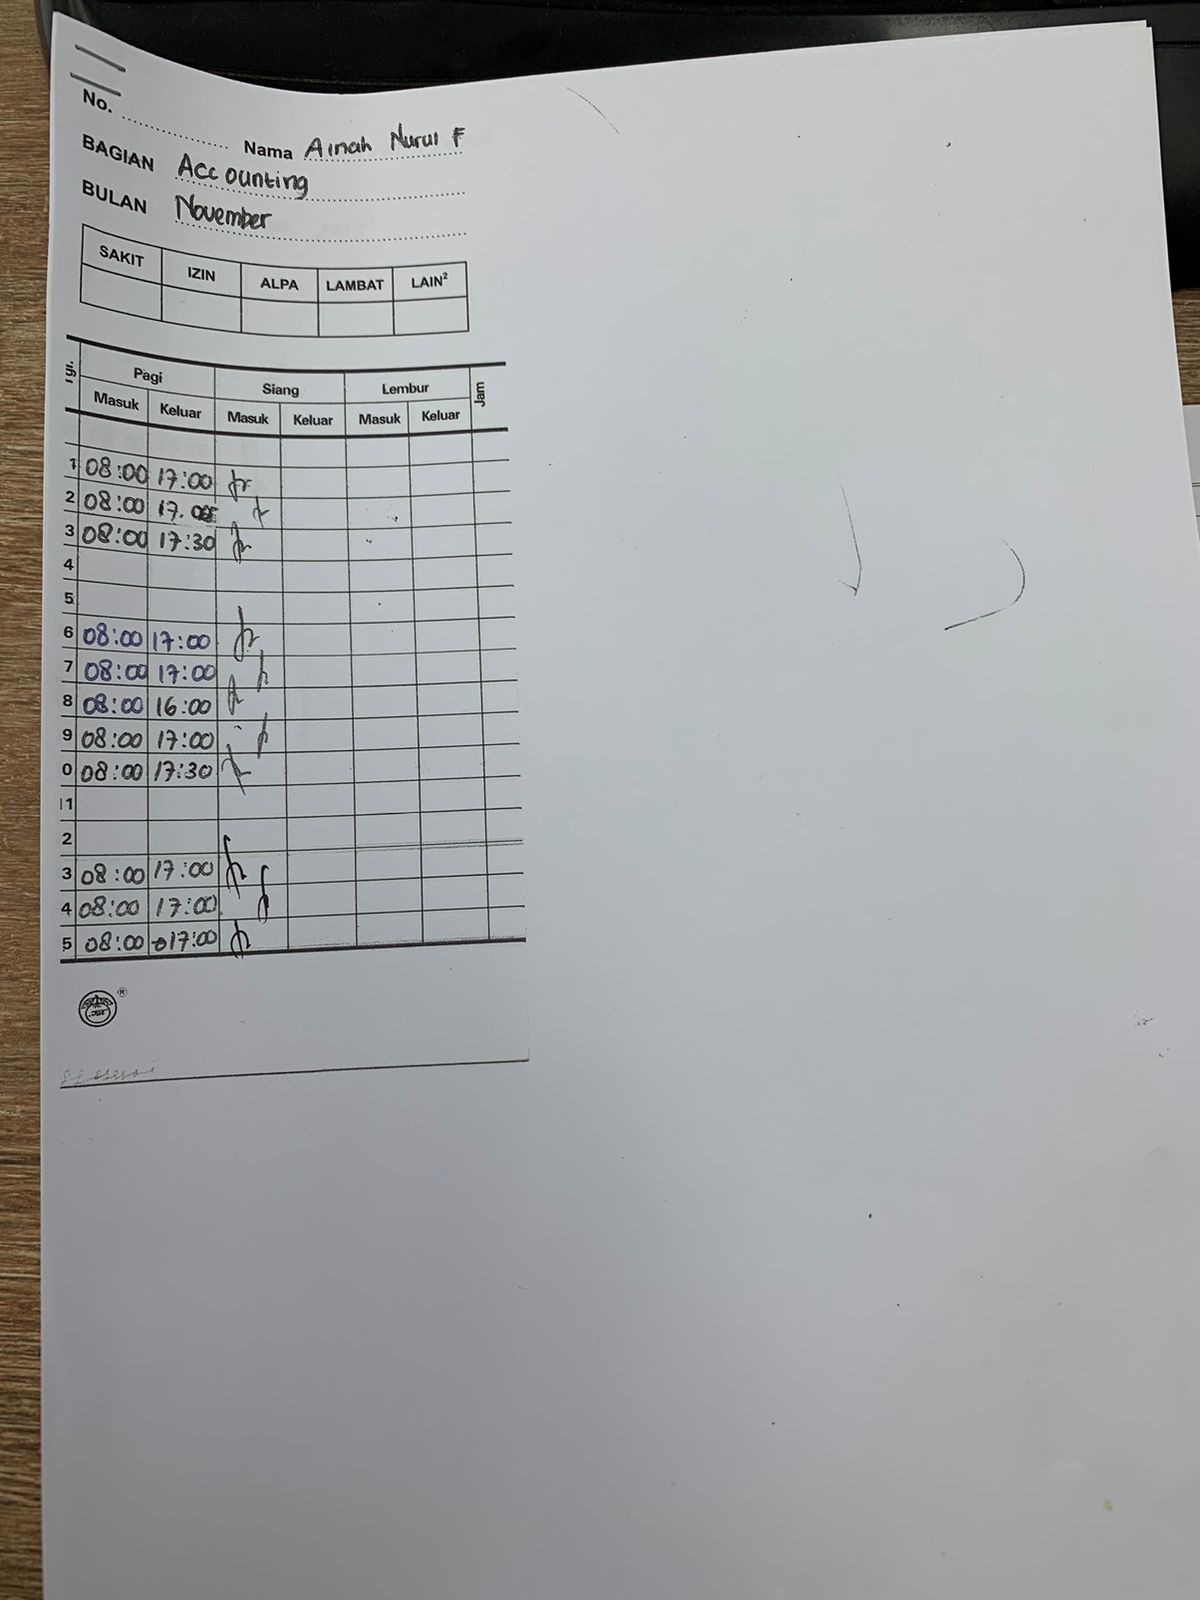 No. Nama Ainah Nurul F
BAGIAN Accounting
BULAN November
SAKIT IZIN ALPA LAMBAT LAIN²
Tgl. Pagi Siang Lembur Jam
Masuk Keluar Masuk Keluar Masuk Keluar
1 08:00 17:00
2 08:00 17.00
3 08:00 17:30
4
5
6 08:00 17:00
7 08:00 17:00
8 08:00 16:00
9 08:00 17:00
0 08:00 17:30
11
2
3 08:00 17:00
4 08:00 17:00
5 08:00 17:00
®